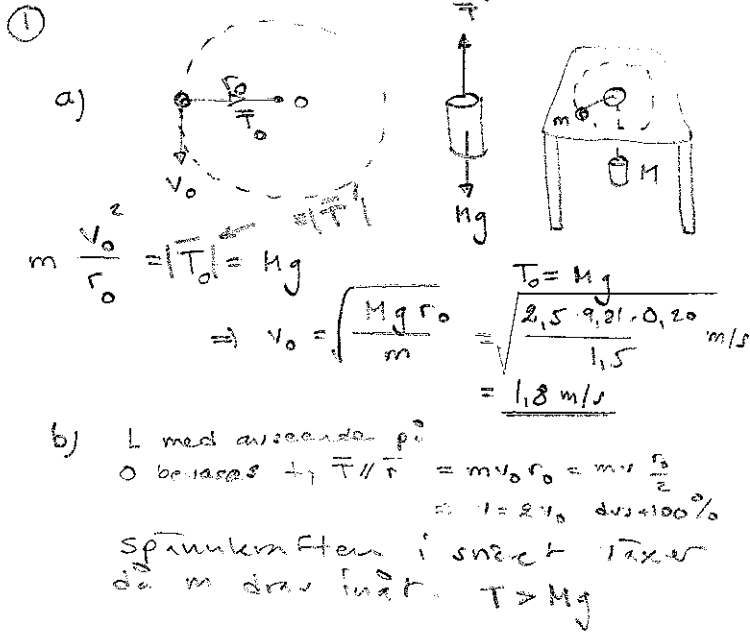 ①
a)
r₀
T̄₀
O
v₀
T̄'
Mg
m
L
M
m v₀²/r₀ = |T̄₀| = Mg
= |T̄'|
T₀ = Mg
⇒ v₀ = √(M g r₀ / m) = √(2,5·9,81·0,20 / 1,5) m/s
= 1,8 m/s
b) L med avseende på
O bevaras ty T̄ // r̄ = mv₀r₀ = mv r₀/2
⇒ v = 2v₀ dvs +100%
Spännkraften i snöret växer
då m dras inåt. T > Mg